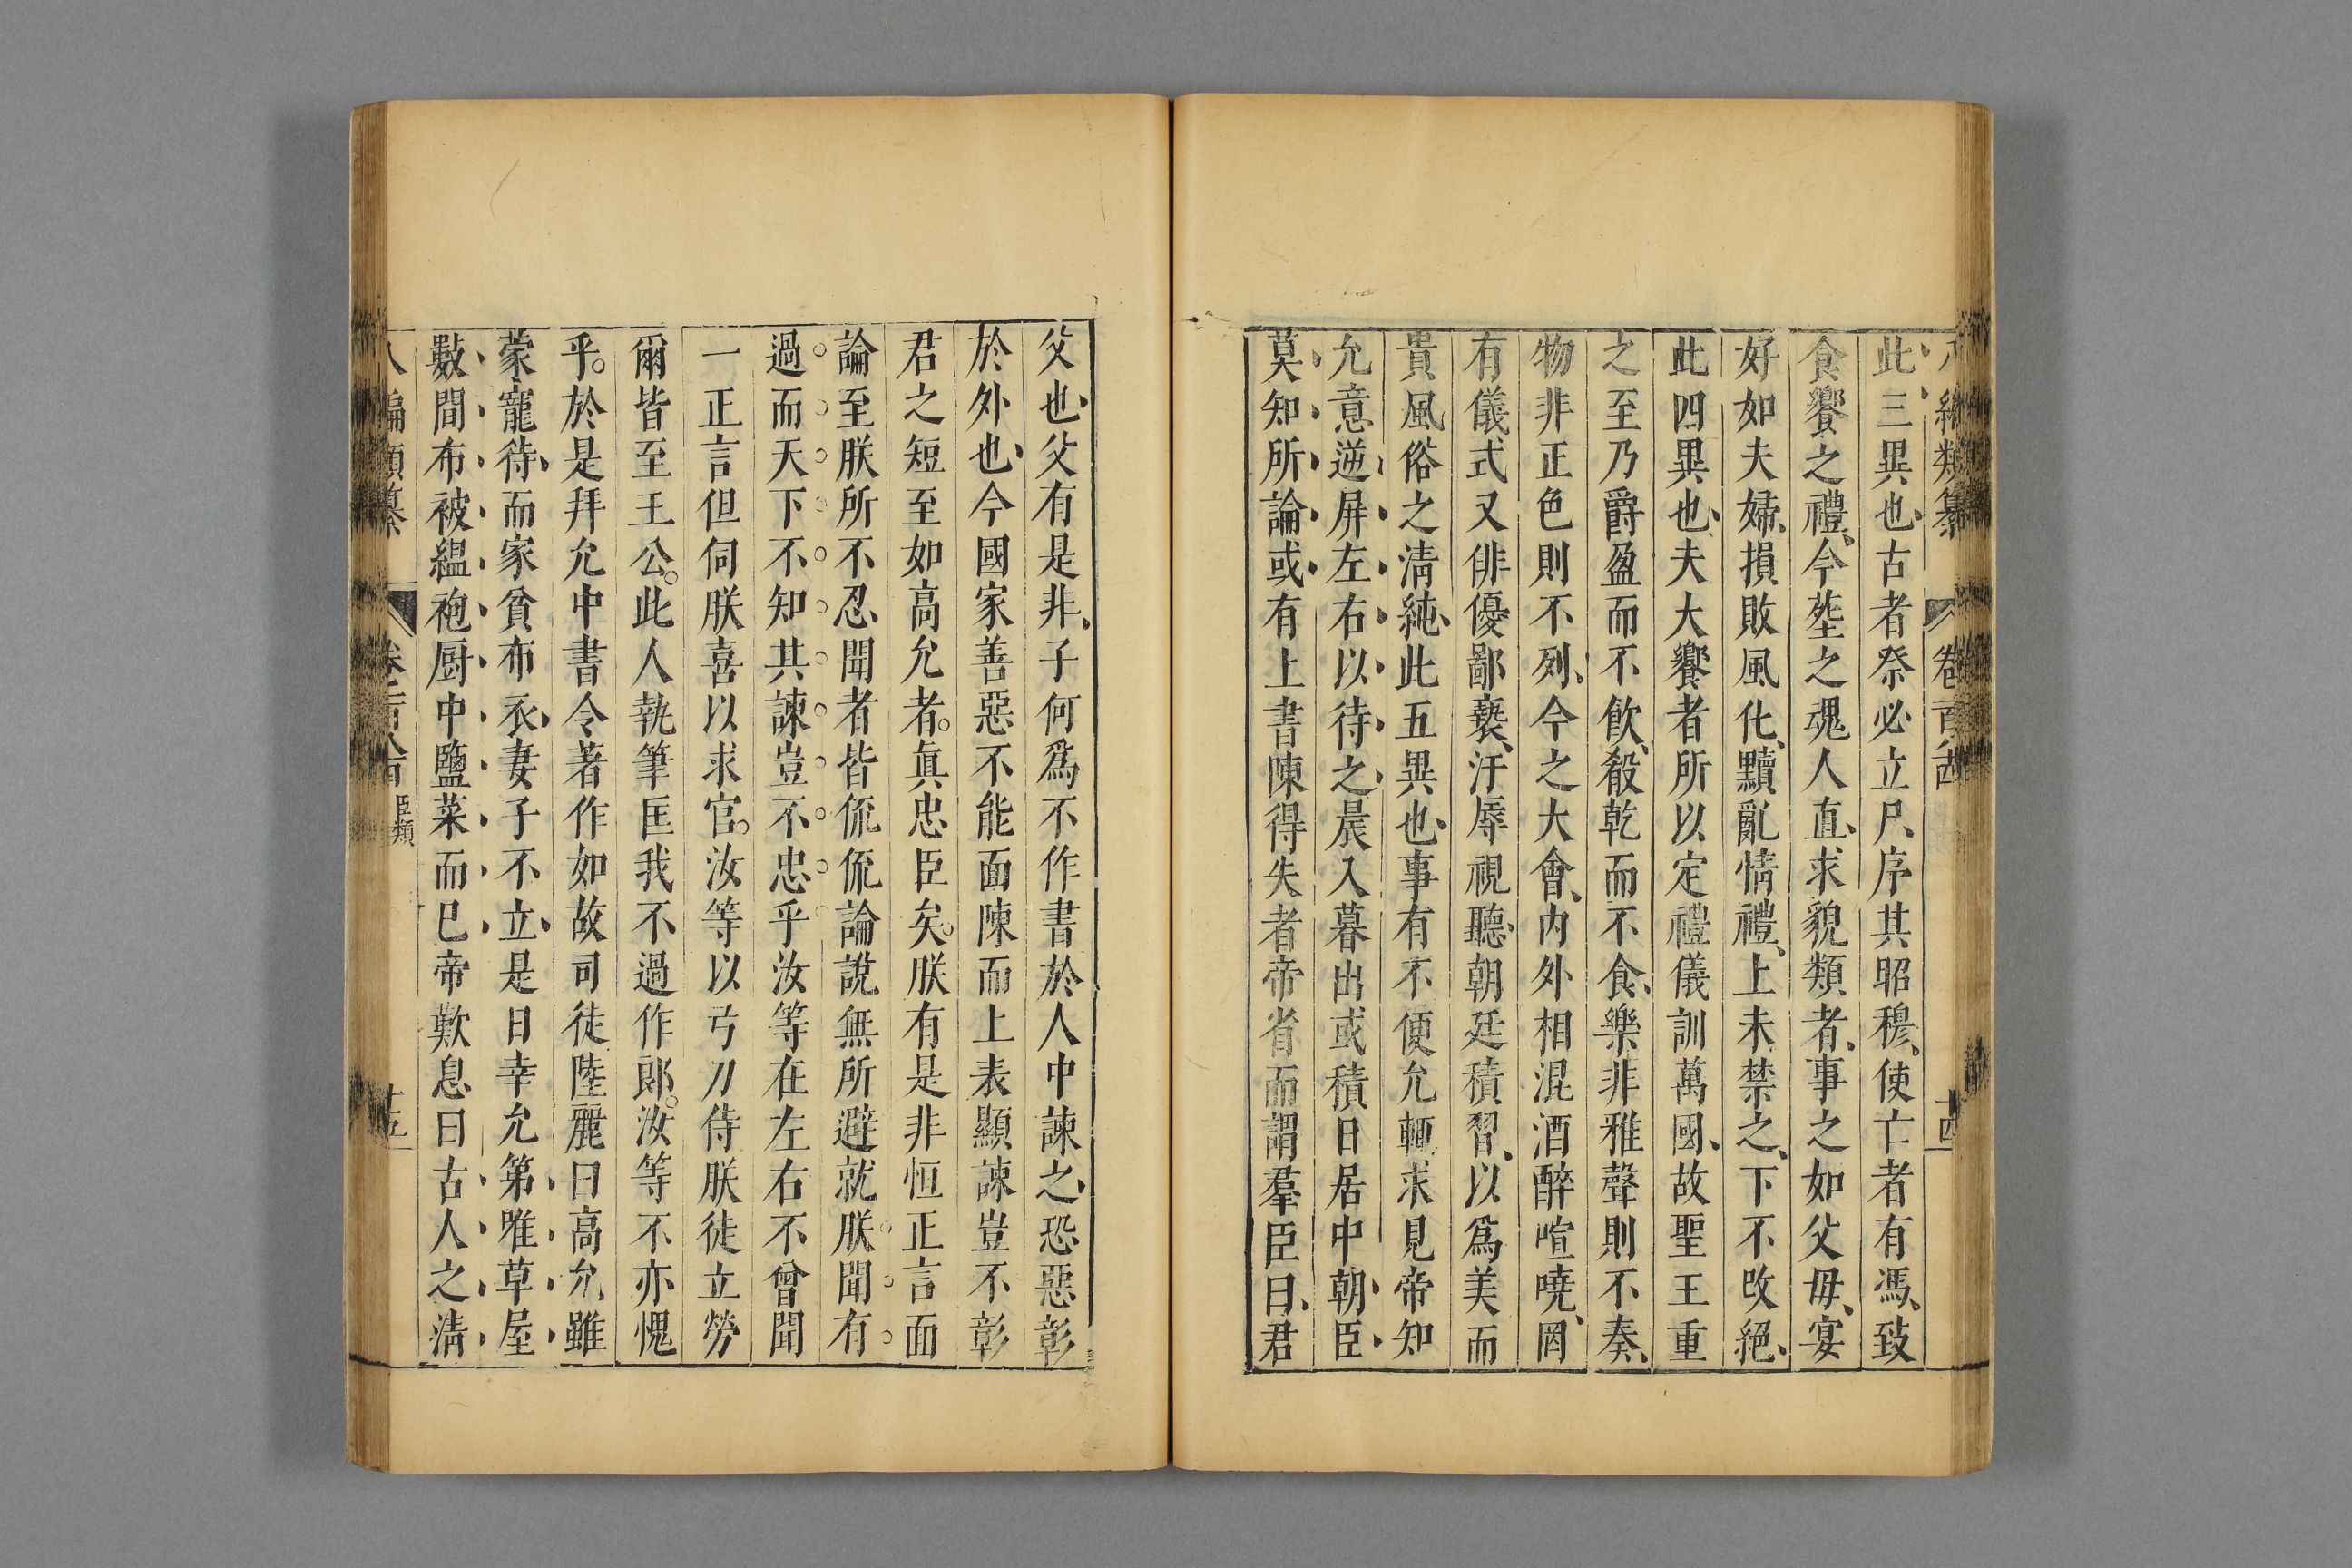 此三異也古者祭必立尸序其昭穆使亡者有馮致
食饗之禮今塟之魂人直求貌類者事之如父母宴
好如夫婦損敗風化黷亂情禮上未禁之下不改絕
此四異也夫大饗者所以定禮儀訓萬國故聖王重
之至乃爵盈而不飲殽乾而不食樂非雅聲則不奏
物非正色則不列今之大會內外相混酒醉喧嘵罔
有儀式又俳優鄙䙝汙辱視聽朝廷積習以爲美而
貴風俗之清純此五異也事有不便允輙求見帝知
允意逆屏左右以待之晨入暮出或積日居中朝臣
莫知所論或有上書陳得失者帝省而謂羣臣曰君
父也父有是非子何爲不作書於人中諫之恐惡彰
於外也今國家善惡不能面陳而上表顯諫豈不彰
君之短至如高允者眞忠臣矣朕有是非恒正言面
論至朕所不忍聞者皆侃侃論說無所避就朕聞有
過而天下不知其諫豈不忠乎汝等在左右不曾聞
一正言但伺朕喜以求官汝等以弓刀侍朕徒立勞
爾皆至王公此人執筆匡我不過作郎汝等不亦愧
乎於是拜允中書令著作如故司徒陸麗曰高允雖
蒙寵待而家貧布衣妻子不立是日幸允第唯草屋
數間布被緼袍厨中鹽菜而已帝歎息曰古人之清
八編類纂 卷 臣類 十五